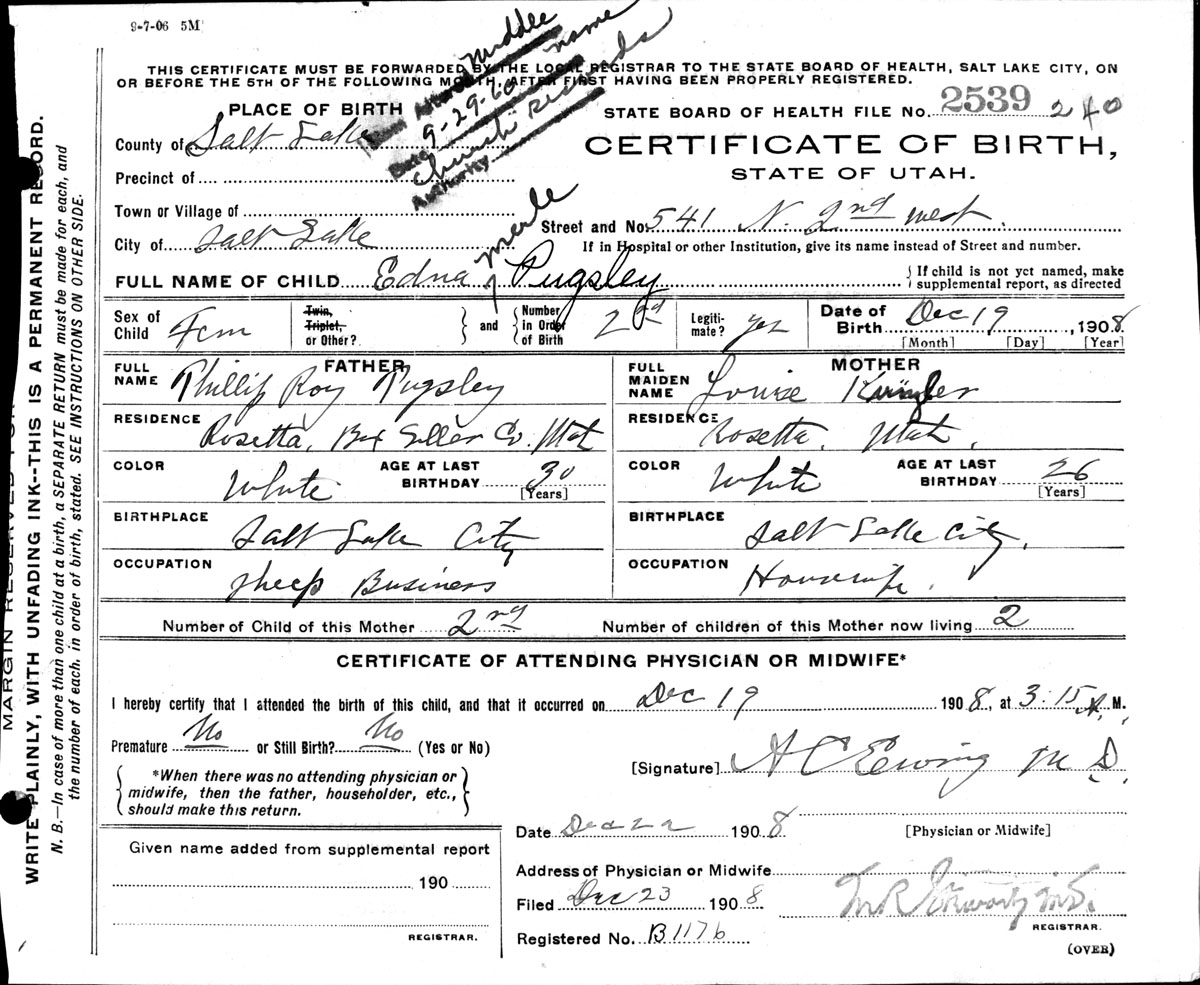 9-7-06 5M
THIS CERTIFICATE MUST BE FORWARDED BY THE LOCAL REGISTRAR TO THE STATE BOARD OF HEALTH, SALT LAKE CITY, ON
OR BEFORE THE 5TH OF THE FOLLOWING MONTH, AFTER FIRST HAVING BEEN PROPERLY REGISTERED.
Middle name
Date 9-29-60
Authority Church Records
PLACE OF BIRTH
STATE BOARD OF HEALTH FILE No. 2539 240
County of Salt Lake
CERTIFICATE OF BIRTH,
STATE OF UTAH.
Precinct of
Town or Village of
Street and No. 541 N. 2nd west.
City of Salt Lake
If in Hospital or other Institution, give its name instead of Street and number.
merle
FULL NAME OF CHILD Edna Pugsley
{ If child is not yet named, make supplemental report, as directed
Sex of Child Fem
Twin, Triplet, or Other? } and { Number in Order of Birth 2nd
Legitimate? yes
Date of Birth Dec 19, 1908
[Month] [Day] [Year]
FATHER
FULL NAME Phillip Roy Pugsley
MOTHER
FULL MAIDEN NAME Louise
RESIDENCE Rosetta, Box Elder Co. Utah
RESIDENCE Rosetta, Utah,
COLOR White AGE AT LAST BIRTHDAY 30 [Years]
COLOR White AGE AT LAST BIRTHDAY 26 [Years]
BIRTHPLACE Salt Lake City
BIRTHPLACE Salt Lake City,
OCCUPATION sheep Business
OCCUPATION Housewife.
Number of Child of this Mother 2nd Number of children of this Mother now living 2
CERTIFICATE OF ATTENDING PHYSICIAN OR MIDWIFE*
I hereby certify that I attended the birth of this child, and that it occurred on Dec 19 1908, at 3:15 A. M.
Premature No or Still Birth? No (Yes or No)
{ *When there was no attending physician or midwife, then the father, householder, etc., should make this return. }
[Signature] H C Ewing M D.
Date Dec 22 1908
[Physician or Midwife]
Given name added from supplemental report
190
REGISTRAR.
Address of Physician or Midwife
Filed Dec 23 1908
REGISTRAR.
Registered No. B1176
(OVER)
MARGIN RESERVED FOR
WRITE PLAINLY, WITH UNFADING INK--THIS IS A PERMANENT RECORD.
N. B.—In case of more than one child at a birth, a SEPARATE RETURN must be made for each, and
the number of each, in order of birth, stated. SEE INSTRUCTIONS ON OTHER SIDE.